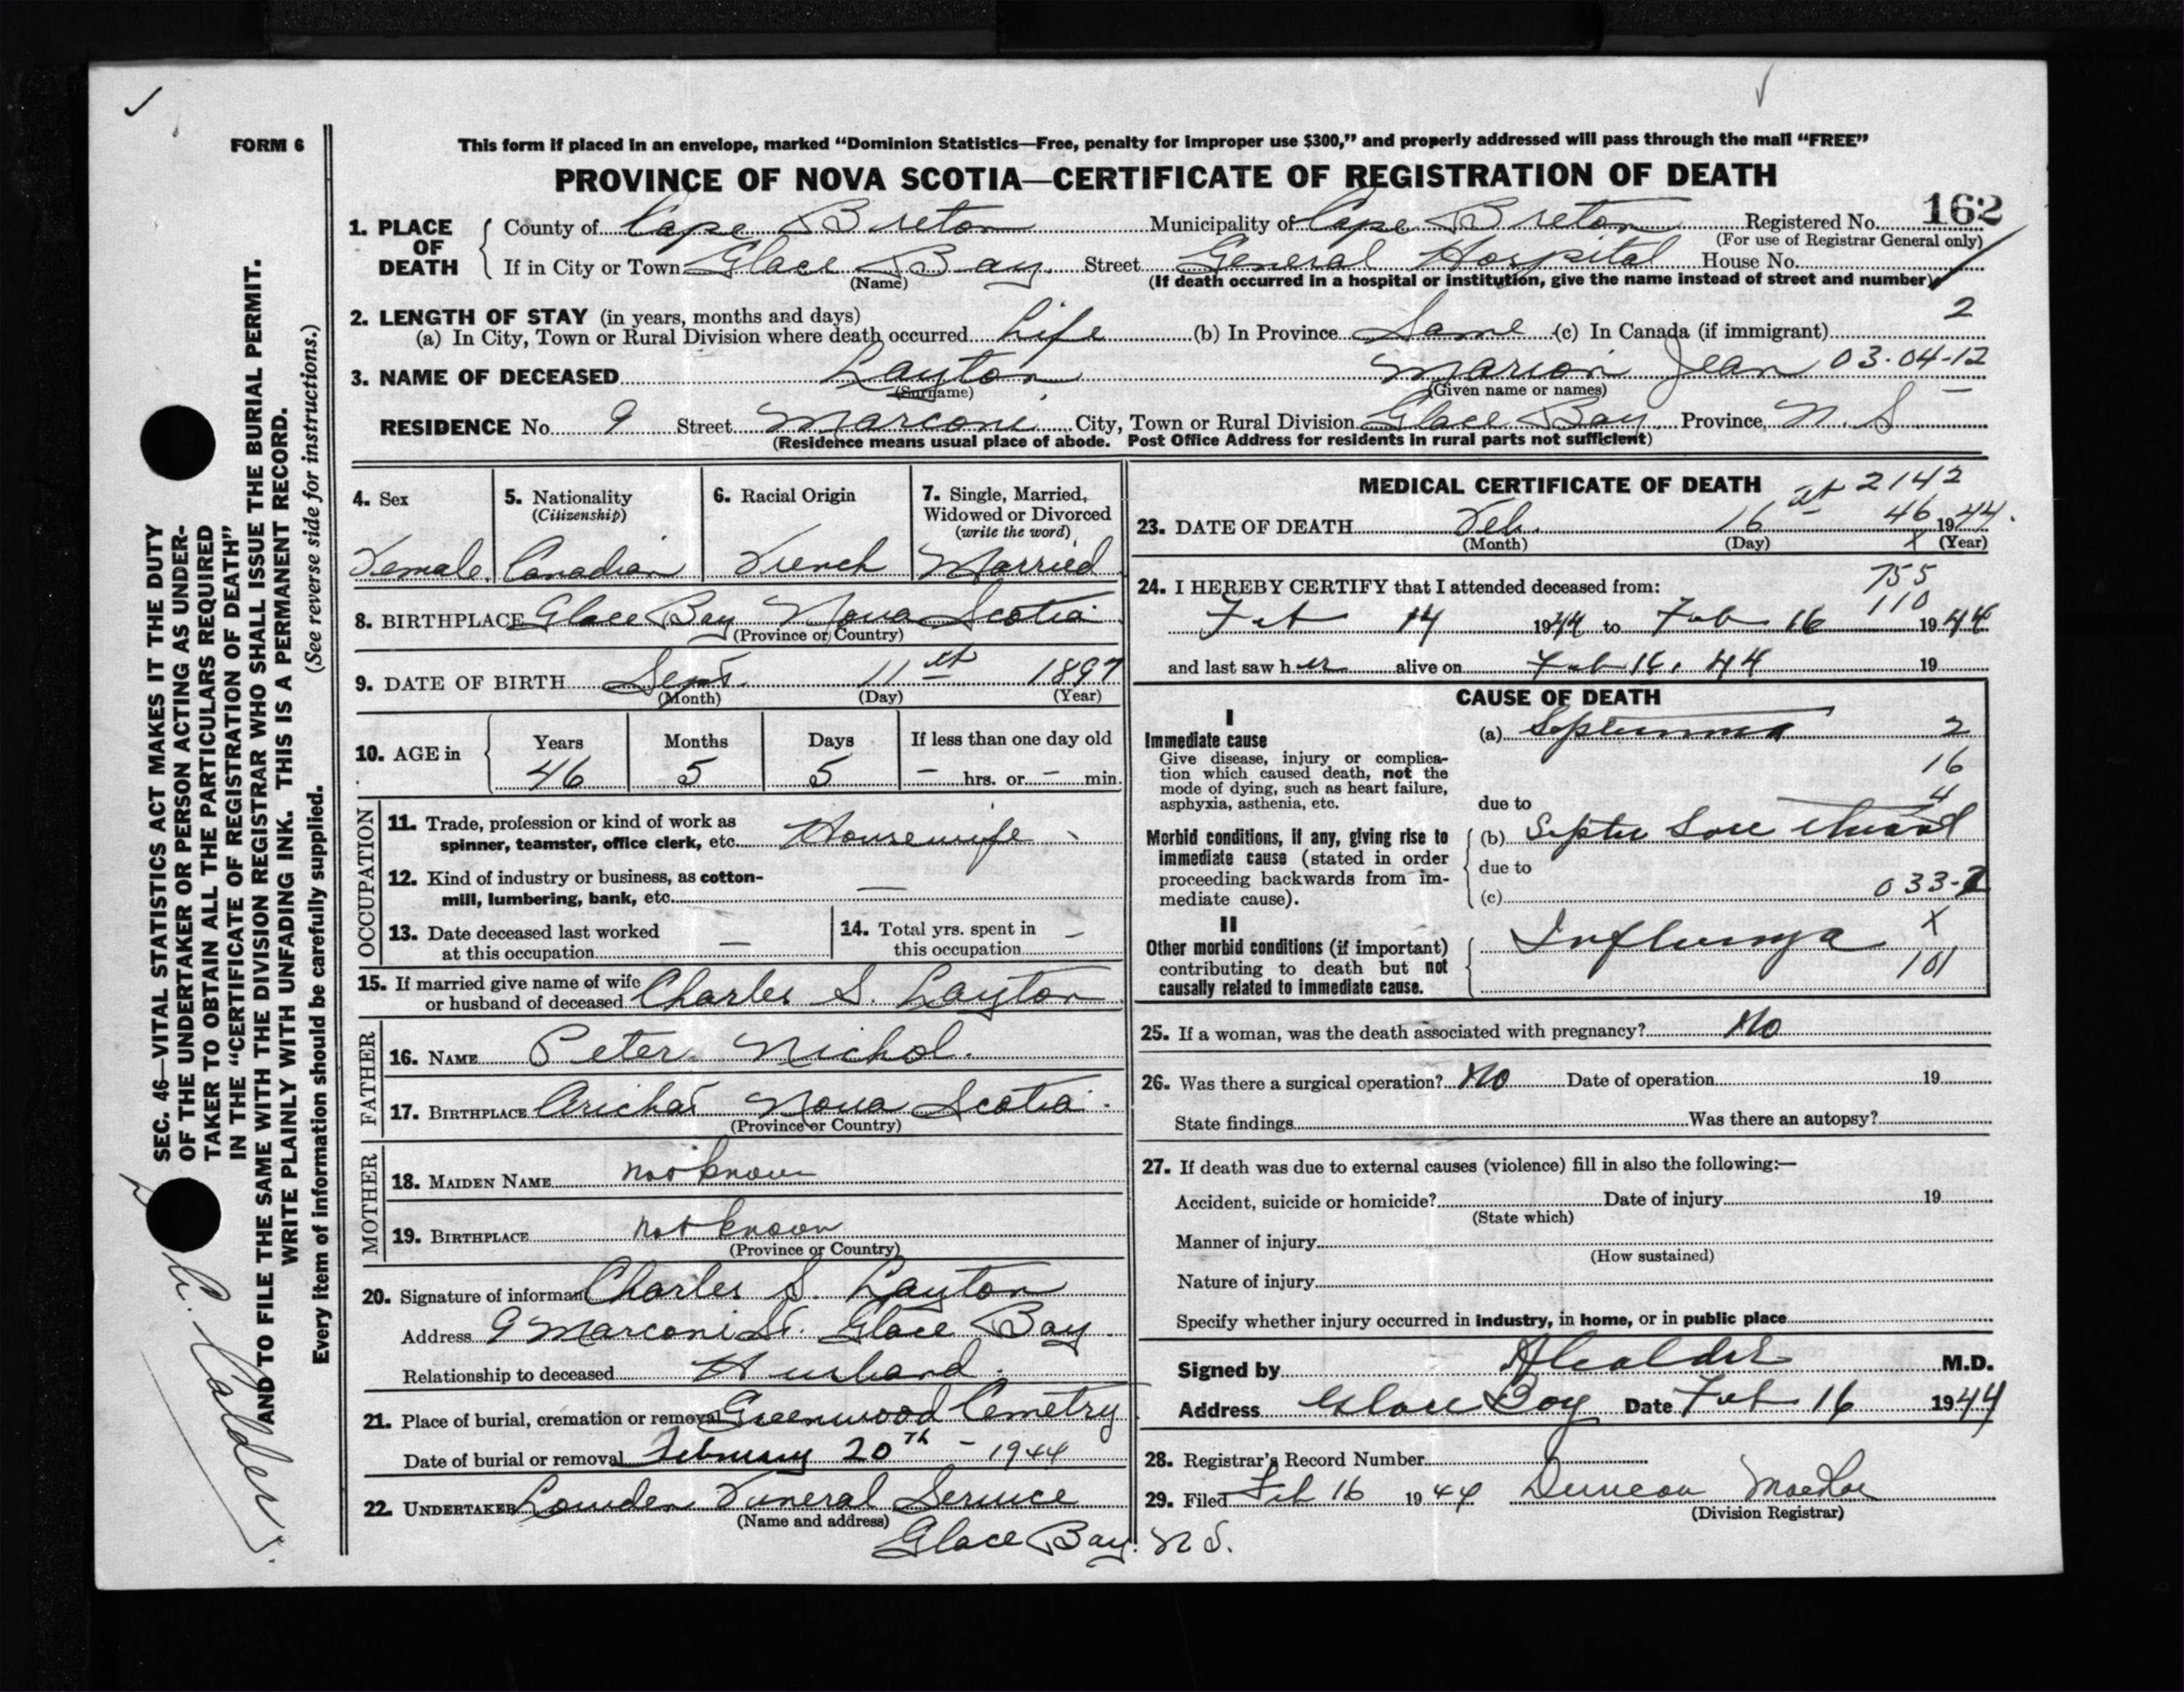 FORM 6
This form if placed in an envelope, marked "Dominion Statistics—Free, penalty for improper use $300," and properly addressed will pass through the mail "FREE"
PROVINCE OF NOVA SCOTIA—CERTIFICATE OF REGISTRATION OF DEATH
162
1. PLACE OF DEATH County of Cape Breton Municipality of Cape Breton Registered No.
(For use of Registrar General only)
If in City or Town Glace Bay Street General Hospital House No.
(Name) (If death occurred in a hospital or institution, give the name instead of street and number)
2. LENGTH OF STAY (in years, months and days) 2
(a) In City, Town or Rural Division where death occurred Life (b) In Province Same (c) In Canada (if immigrant)
3. NAME OF DECEASED Layton Marion Jean 03-04-12
(Surname) (Given name or names)
RESIDENCE No. 9 Street Marconi City, Town or Rural Division Glace Bay Province N. S
(Residence means usual place of abode. Post Office Address for residents in rural parts not sufficient)
4. Sex
Female
5. Nationality
(Citizenship)
Canadian
6. Racial Origin
French
7. Single, Married,
Widowed or Divorced
(write the word)
Married
8. BIRTHPLACE Glace Bay Nova Scotia
(Province or Country)
9. DATE OF BIRTH Sept. 11th 1897
(Month) (Day) (Year)
10. AGE in Years Months Days If less than one day old
46 5 5 – hrs. or – min.
OCCUPATION
11. Trade, profession or kind of work as
spinner, teamster, office clerk, etc. Housewife
12. Kind of industry or business, as cotton-
mill, lumbering, bank, etc. —
13. Date deceased last worked
at this occupation —
14. Total yrs. spent in
this occupation –
15. If married give name of wife
or husband of deceased Charles S. Layton
FATHER
16. NAME Peter Nichol.
17. BIRTHPLACE Arichat Nova Scotia.
(Province or Country)
MOTHER
18. MAIDEN NAME not known
19. BIRTHPLACE not known
(Province or Country)
20. Signature of informant Charles S. Layton
Address 9 Marconi St. Glace Bay
Relationship to deceased Husband.
21. Place of burial, cremation or removal Greenwood Cemetry
Date of burial or removal February 20th – 1944
22. UNDERTAKER Lowden Funeral Service
(Name and address)
Glace Bay. N S.
MEDICAL CERTIFICATE OF DEATH 2142
23. DATE OF DEATH Feb. 16th 46 1944.
(Month) (Day) X (Year)
24. I HEREBY CERTIFY that I attended deceased from: 755
110
Feb 14 1944 to Feb 16 1944
and last saw her alive on Feb 16. 44 19
CAUSE OF DEATH
I
Immediate cause
Give disease, injury or complica-
tion which caused death, not the
mode of dying, such as heart failure,
asphyxia, asthenia, etc.
(a) Septicemia 2
16
4
due to
Morbid conditions, if any, giving rise to
immediate cause (stated in order
proceeding backwards from im-
mediate cause).
(b) Septic Sore throat
due to
(c) 033-2
II
Other morbid conditions (if important)
contributing to death but not
causally related to immediate cause.
Influenza X
101
25. If a woman, was the death associated with pregnancy? No
26. Was there a surgical operation? No Date of operation 19
State findings Was there an autopsy?
27. If death was due to external causes (violence) fill in also the following:—
Accident, suicide or homicide? Date of injury 19
(State which)
Manner of injury
(How sustained)
Nature of injury
Specify whether injury occurred in industry, in home, or in public place
Signed by A Calder M.D.
Address Glace Bay Date Feb 16 1944
28. Registrar's Record Number
29. Filed Feb 16 1944 Duncan
(Division Registrar)
SEC. 46—VITAL STATISTICS ACT MAKES IT THE DUTY
OF THE UNDERTAKER OR PERSON ACTING AS UNDER-
TAKER TO OBTAIN ALL THE PARTICULARS REQUIRED
IN THE "CERTIFICATE OF REGISTRATION OF DEATH"
AND TO FILE THE SAME WITH THE DIVISION REGISTRAR WHO SHALL ISSUE THE BURIAL PERMIT.
WRITE PLAINLY WITH UNFADING INK. THIS IS A PERMANENT RECORD.
Every item of information should be carefully supplied. (See reverse side for instructions.)
Calder